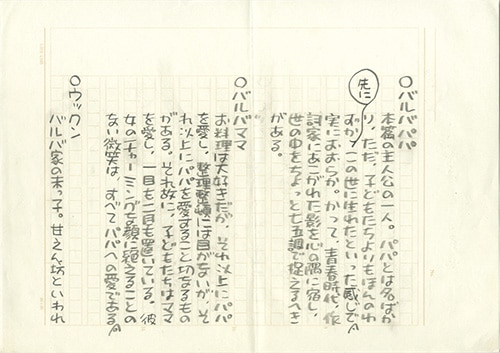 ○バルバパパ
本篇の主人公の一人。パパとは名ばか
り、ただ、子どもたちよりもほんのわ
ずか、先にこの世に生れたといった感じで、
実におおらか。かつて、青春時代、作
詞家にあこがれた影を心の隅に宿し、
世の中をちょっと七五調で捉えるへき
がある。
○バルバママ
お料理は大好きだが、それ以上にパパ
を愛し、整理整頓には目がないが、そ
れ以上にパパを愛すること切なるもの
がある。それ故に、子どもたちはママ
を愛し、一目も二目も置いている。彼
女のチャーミングな顔に絶えることの
ない微笑は、すべてパパへの愛である。
○ウックン
バルバ家の末っ子。甘えん坊といわれ